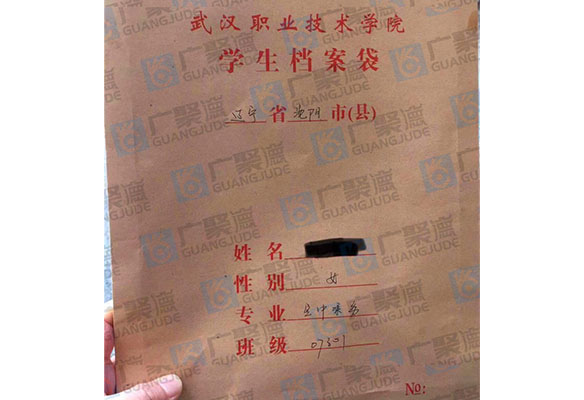 武汉职业技术学院
学生档案袋
辽宁省沈阳市(县)
姓名
性别 女
专业 空中乘务
班级 07301
No:
广聚德
GUANGJUDE